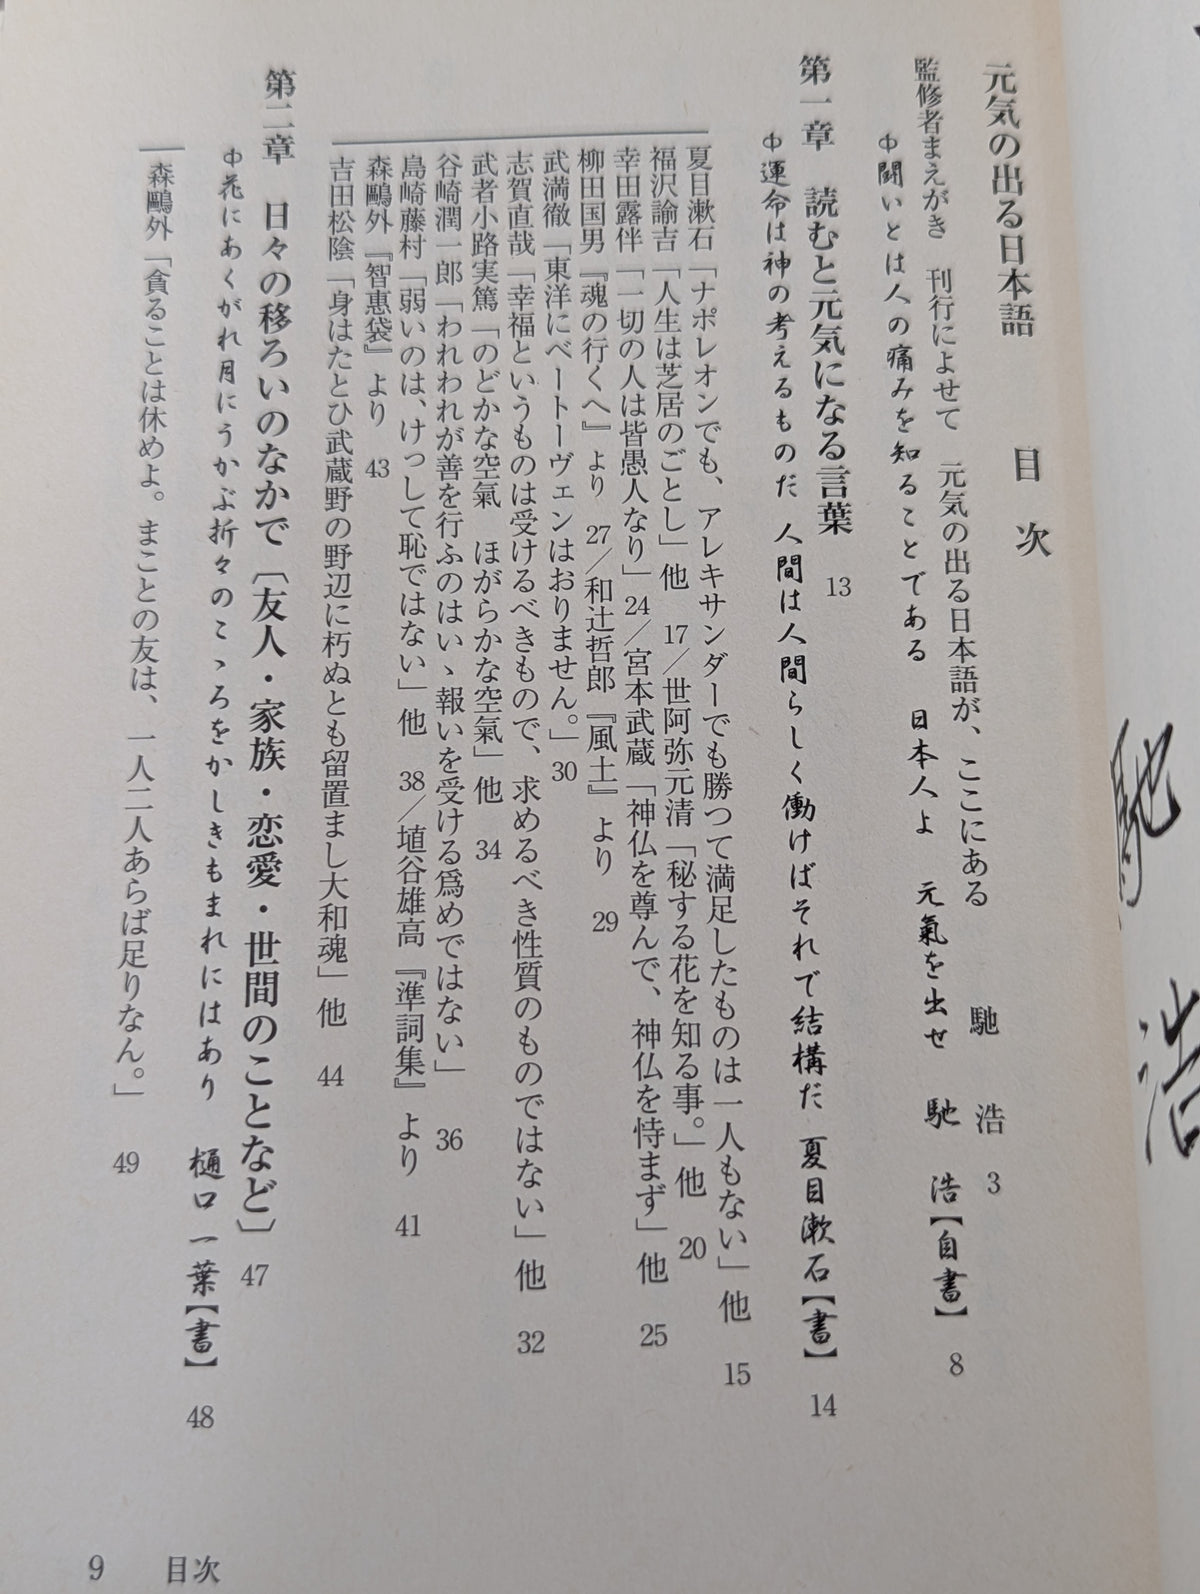 元気の出る日本語　目次
監修者まえがき　刊行によせて　元気の出る日本語が、ここにある　馳　浩　3
闘いとは人の痛みを知ることである　日本人よ　元氣を出せ　馳　浩【自書】　8
第一章　読むと元気になる言葉　13
運命は神の考えるものだ　人間は人間らしく働けばそれで結構だ　夏目漱石【書】　14
夏目漱石「ナポレオンでも、アレキサンダーでも勝つて満足したものは一人もない」他　15
福沢諭吉「人生は芝居のごとし」他　17／世阿弥元清「秘する花を知る事。」他　20
幸田露伴「一切の人は皆愚人なり」24／宮本武蔵「神仏を尊んで、神仏を恃まず」他　25
柳田国男『魂の行くへ』より　27／和辻哲郎『風土』より　29
武満徹「東洋にベートーヴェンはおりません。」30
志賀直哉「幸福というものは受けるべきもので、求めるべき性質のものではない」他　32
武者小路実篤「のどかな空氣　ほがらかな空氣」他　34
谷崎潤一郎「われわれが善を行ふのはいゝ報いを受ける爲めではない」　36
島崎藤村「弱いのは、けっして恥ではない」他　38／埴谷雄高『準詞集』より　41
森鷗外『智惠袋』より　43
吉田松陰「身はたとひ武蔵野の野辺に朽ぬとも留置まし大和魂」他　44
第二章　日々の移ろいのなかで〔友人・家族・恋愛・世間のことなど〕　47
花にあくがれ月にうかぶ折々のこゝろをかしきもまれにはあり　樋口一葉【書】　48
森鷗外「貪ることは休めよ。まことの友は、一人二人あらば足りなん。」　49
9　目次
馳　浩